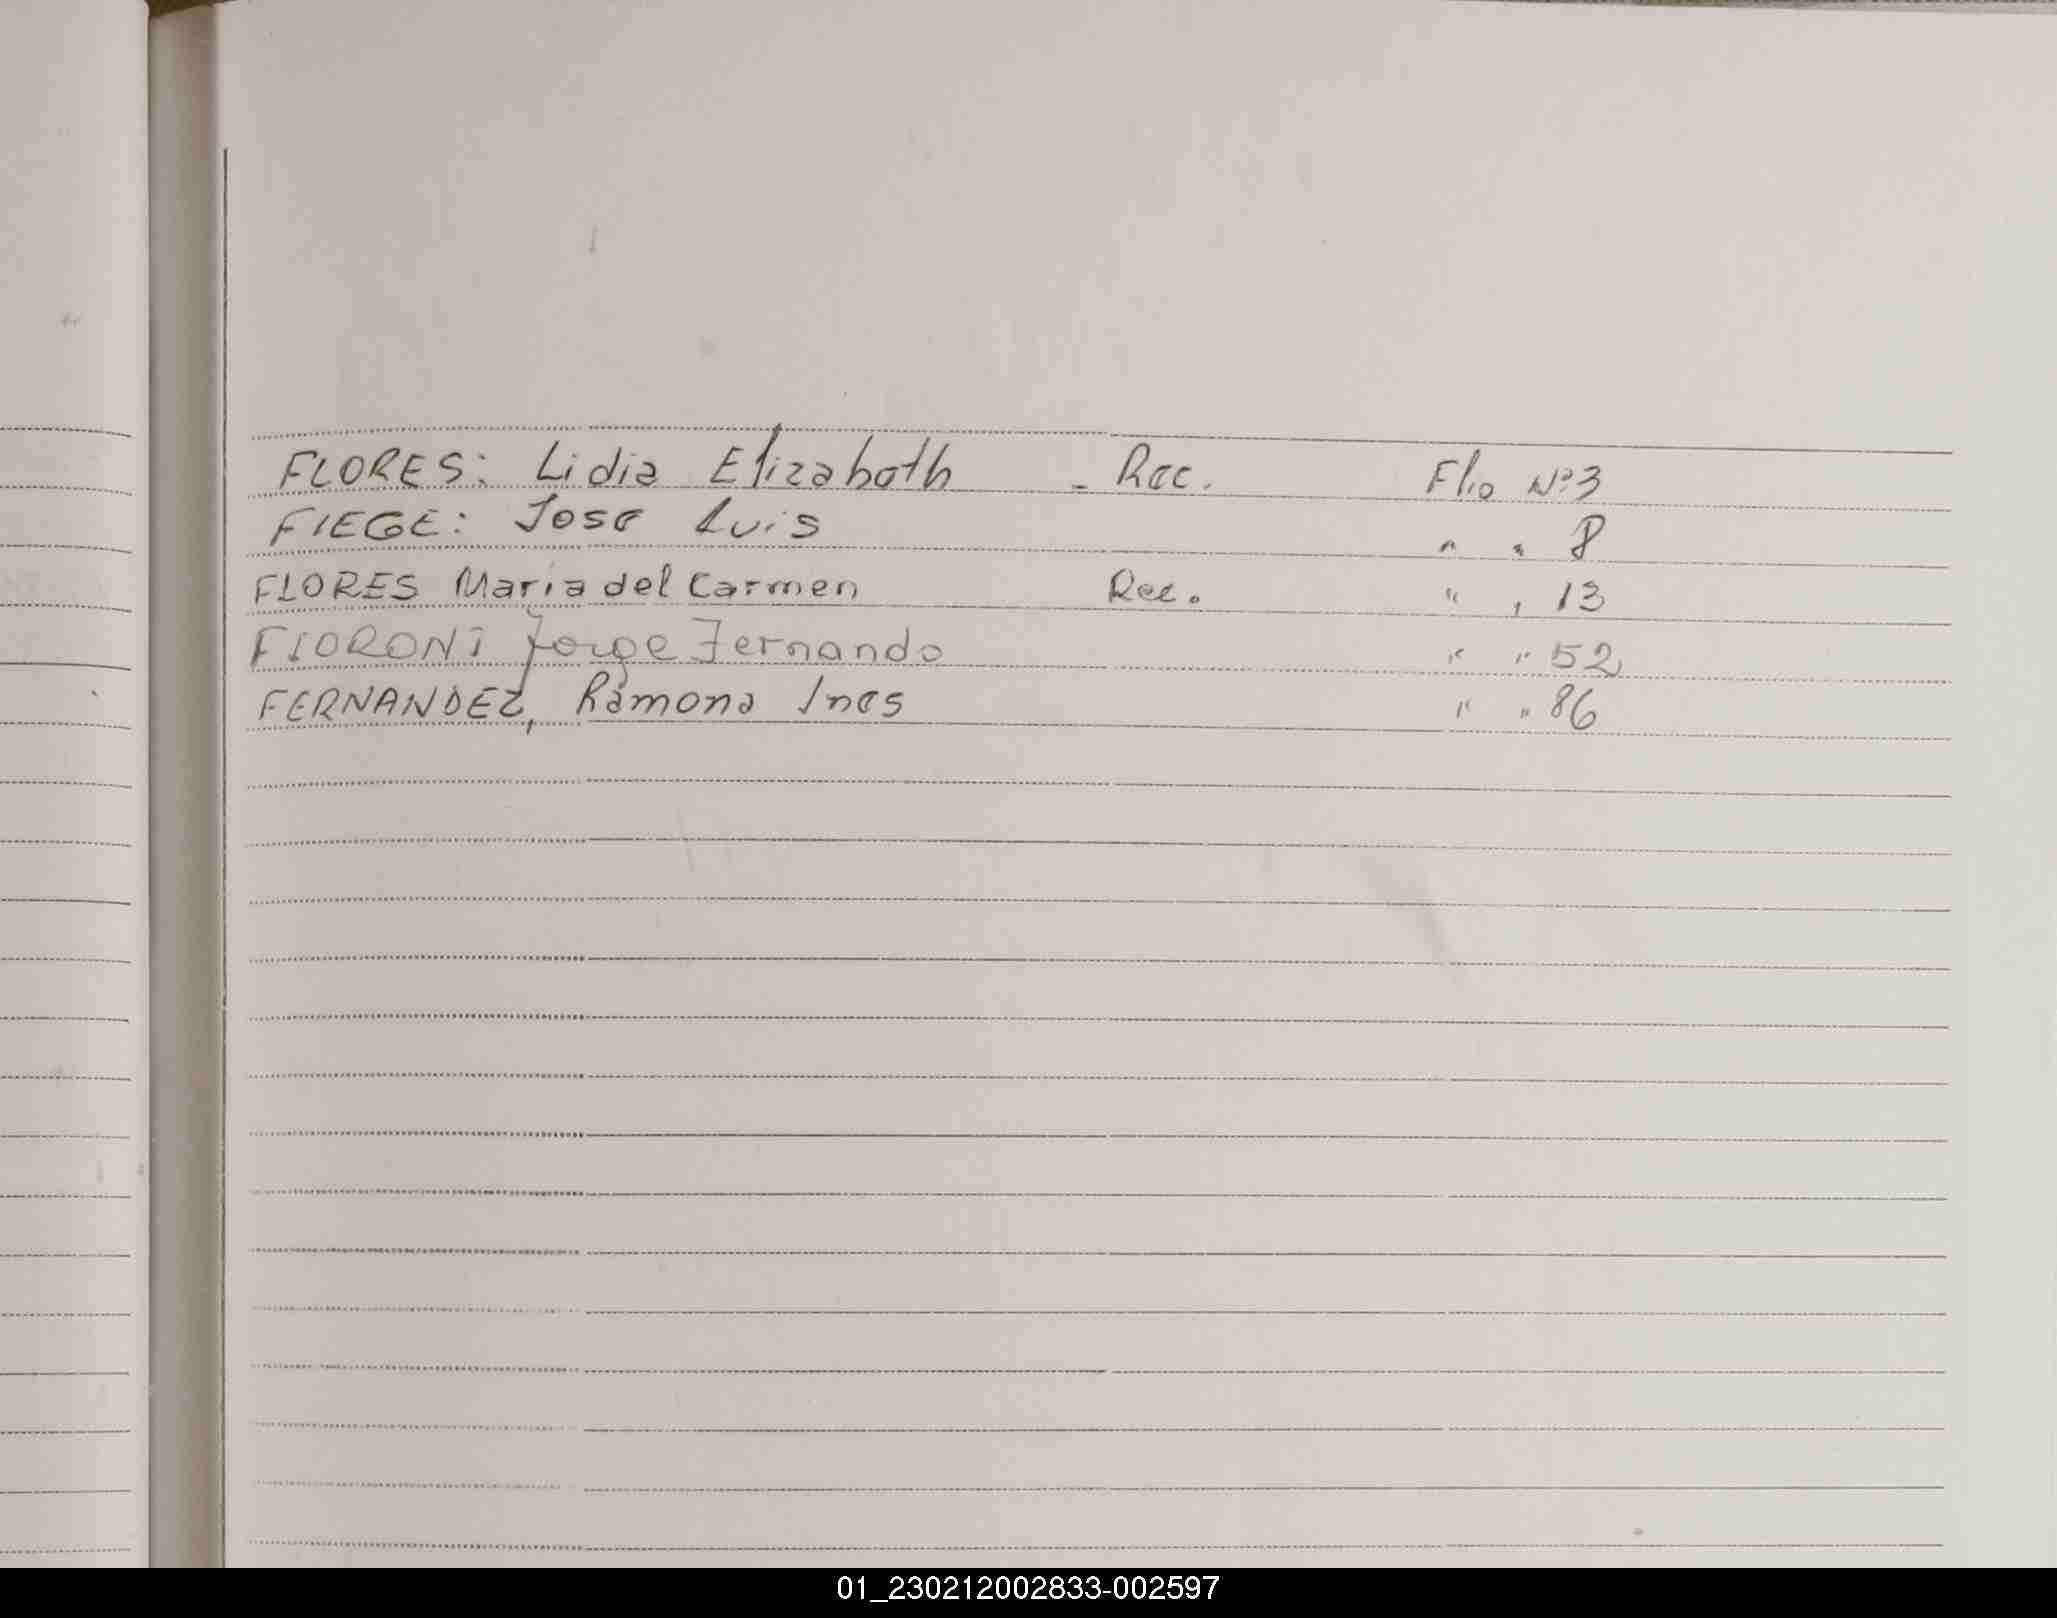 FLORES: Lidia Elizabeth - Rec. Flio Nº 3
FIEGE: Jose Luis " " 8
FLORES Maria del Carmen Rec. " " 13
FIORONI Jorge Fernando " " 52
FERNANDEZ, Ramona Ines " " 86
01_230212002833-002597